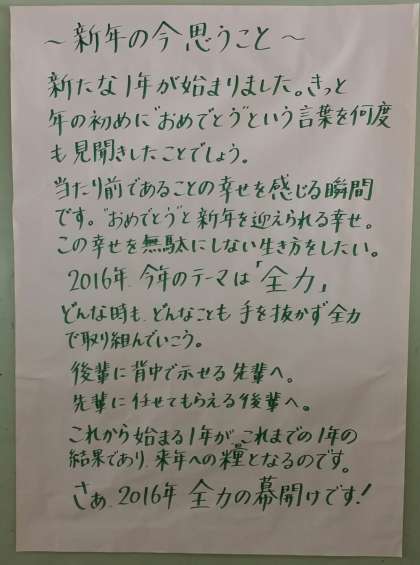 ～新年の今思うこと～
新たな1年が始まりました。きっと
年の初めに"おめでとう"という言葉を何度
も見聞きしたことでしょう。
当たり前であることの幸せを感じる瞬間
です。"おめでとう"と新年を迎えられる幸せ。
この幸せを無駄にしない生き方をしたい。
2016年、今年のテーマは「全力」
どんな時も、どんなことも手を抜かず全力
で取り組んでいこう。
後輩に背中で示せる先輩へ。
先輩に任せてもらえる後輩へ。
これから始まる1年が、これまでの1年の
結果であり、来年への糧となるのです。
さぁ、2016年 全力の幕開けです!